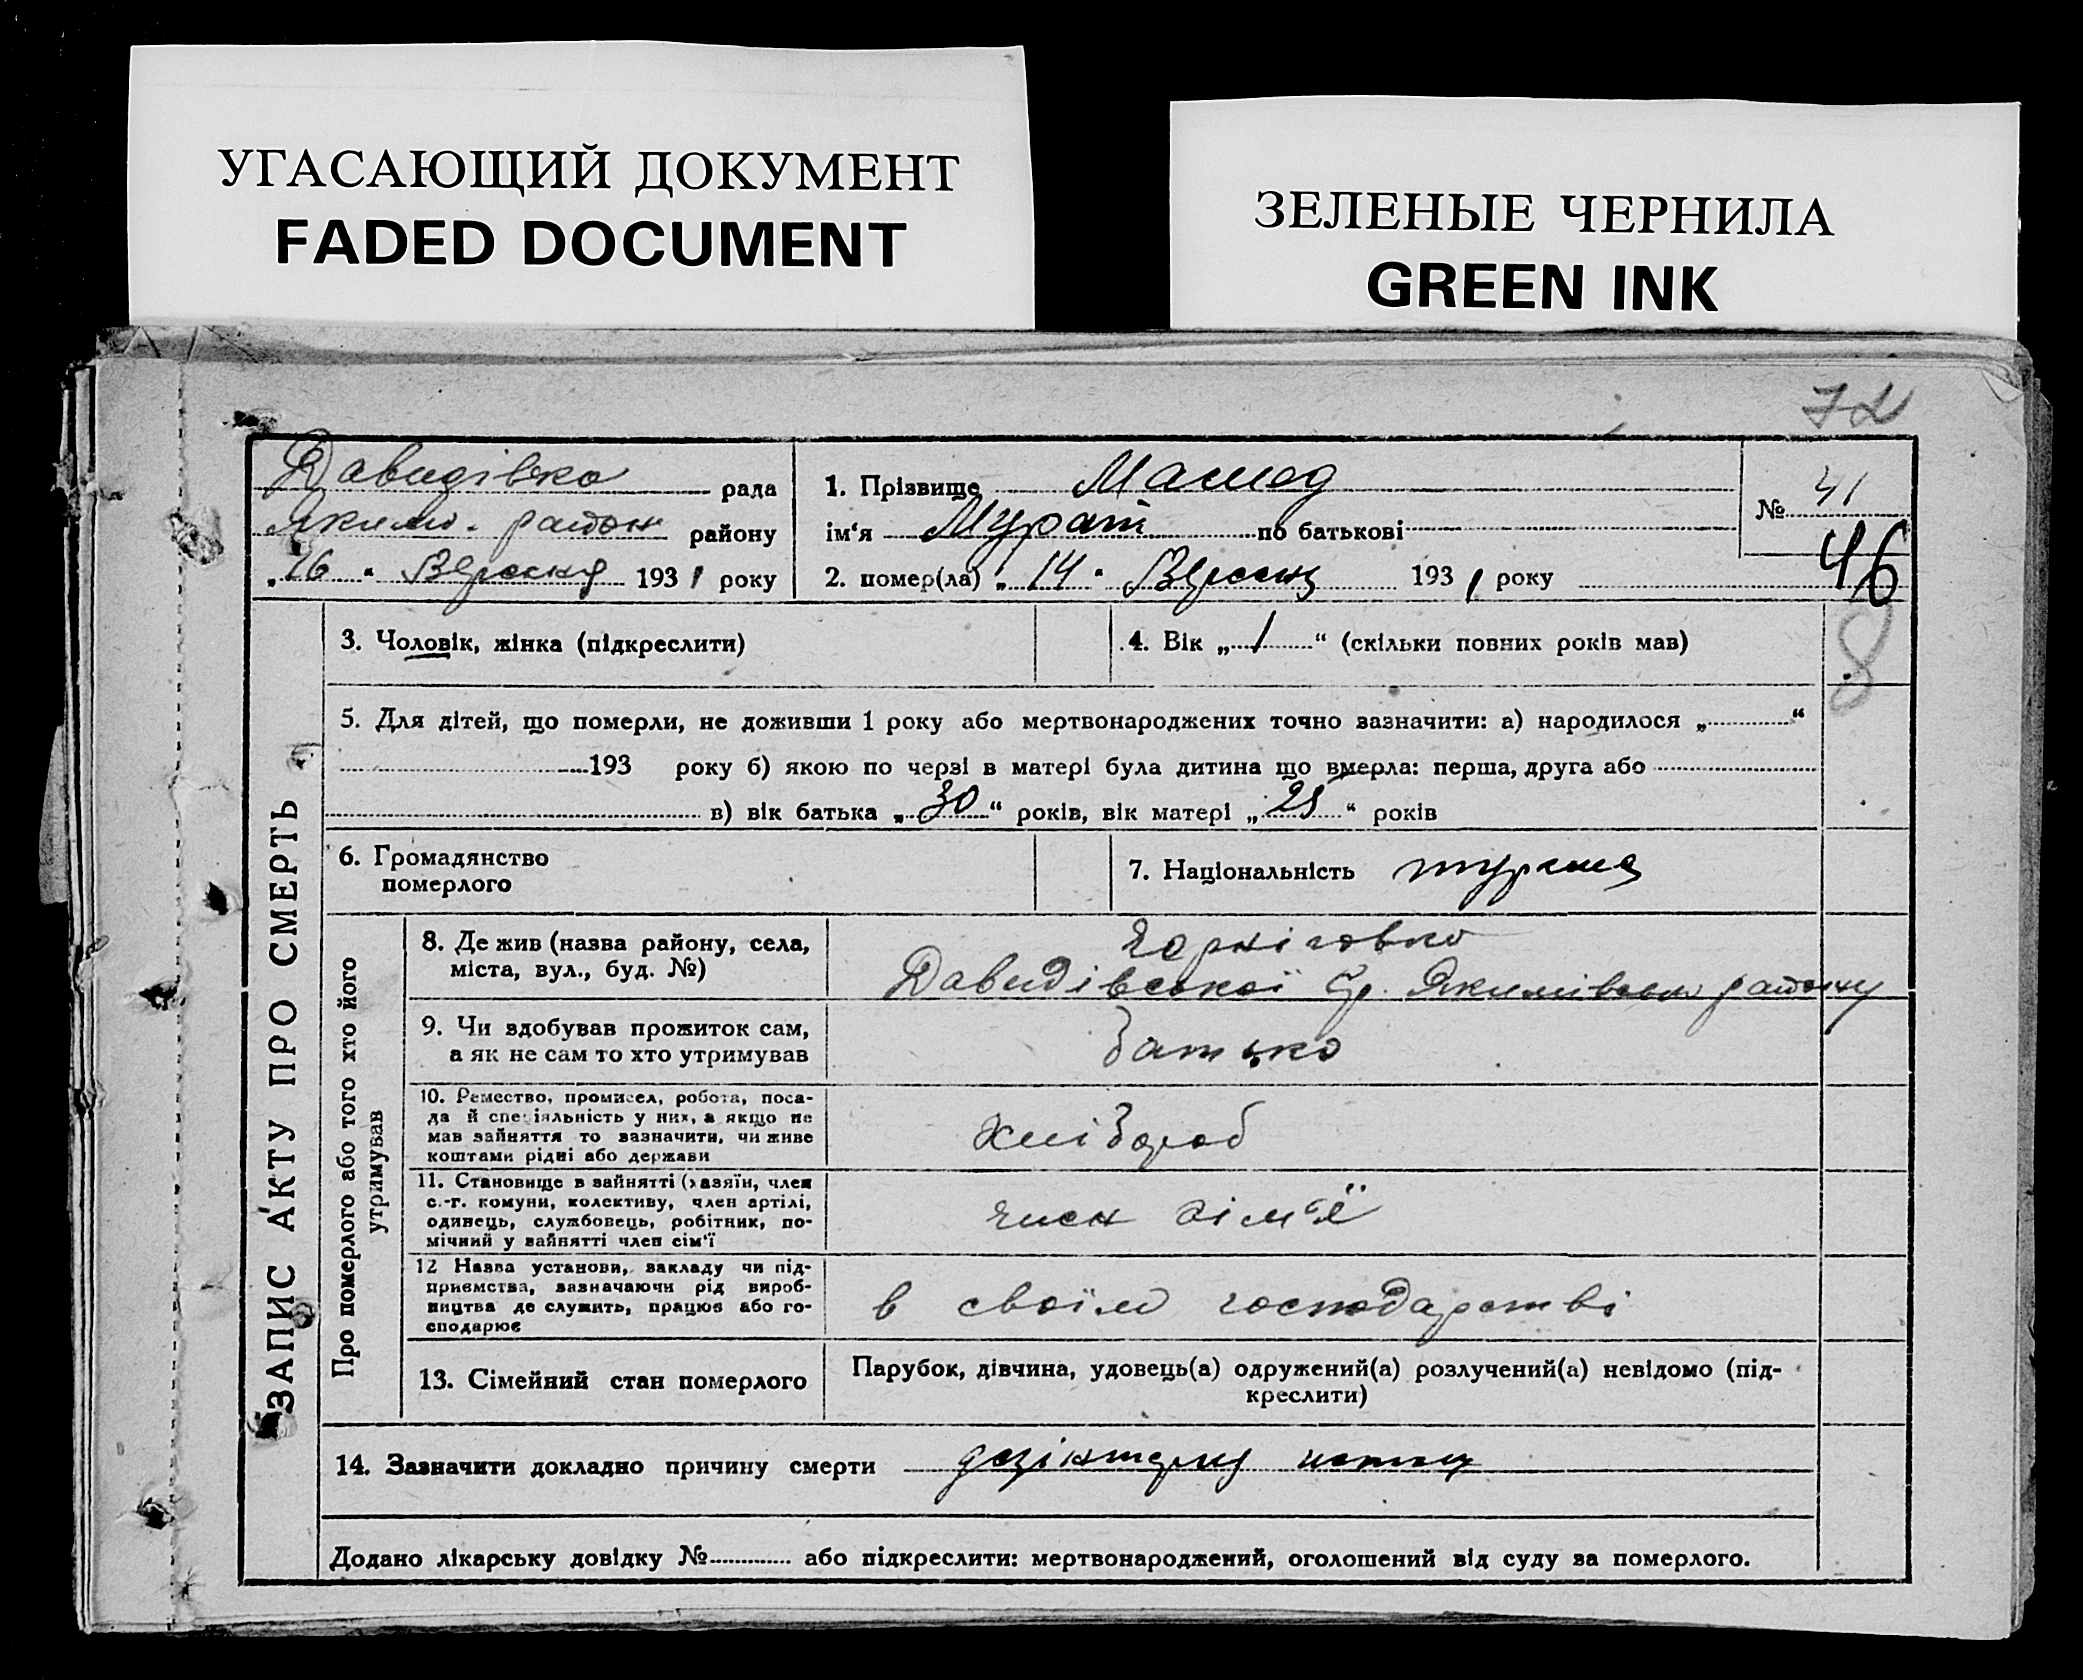 УГАСАЮЩИЙ ДОКУМЕНТ
FADED DOCUMENT
ЗЕЛЕНЫЕ ЧЕРНИЛА
GREEN INK
72
Давидівка рада
Якими. район району
„16“ Вересня 1931 року
1. Прізвище Мамед
ім‘я Мурат по батькові
2. помер(ла) „14“ Вересня 1931 року
№ 41
46
8
ЗАПИС АКТУ ПРО СМЕРТЬ
3. Чоловік, жінка (підкреслити)
4. Вік „1“ (скільки повних років мав)
5. Для дітей, що померли, не доживши 1 року або мертвонароджених точно зазначити: а) народилося „ “
193 року б) якою по черзі в матері була дитина що вмерла: перша, друга або
в) вік батька „30“ років, вік матері „25“ років
6. Громадянство
померлого
7. Національність
Про померлого або того хто його
утримував
8. Де жив (назва району, села,
міста, вул., буд. №)
Чорніговка
Давидівської с/р. Якимівськ району
9. Чи здобував прожиток сам,
а як не сам то хто утримував
батько
10. Ремество, промисел, робота, поса-
да й спеціяльність у них, а якщо не
мав зайняття то зазначити, чи живе
коштами рідні або держави
хлібороб
11. Становище в зайнятті (хазяїн, член
с.-г. комуни, колективу, член артілі,
одинець, службовець, робітник, по-
мічний у зайнятті член сім'ї
член сім'ї
12 Назва установи, закладу чи під-
приємства, зазначаючи рід вироб-
ництва де служить, працює або го-
сподарює
в своїм господарстві
13. Сімейний стан померлого
Парубок, дівчина, удовець(а) одружений(а) розлучений(а) невідомо (під-
креслити)
14. Зазначити докладно причину смерти
Додано лікарську довідку № або підкреслити: мертвонароджений, оголошений від суду за померлого.